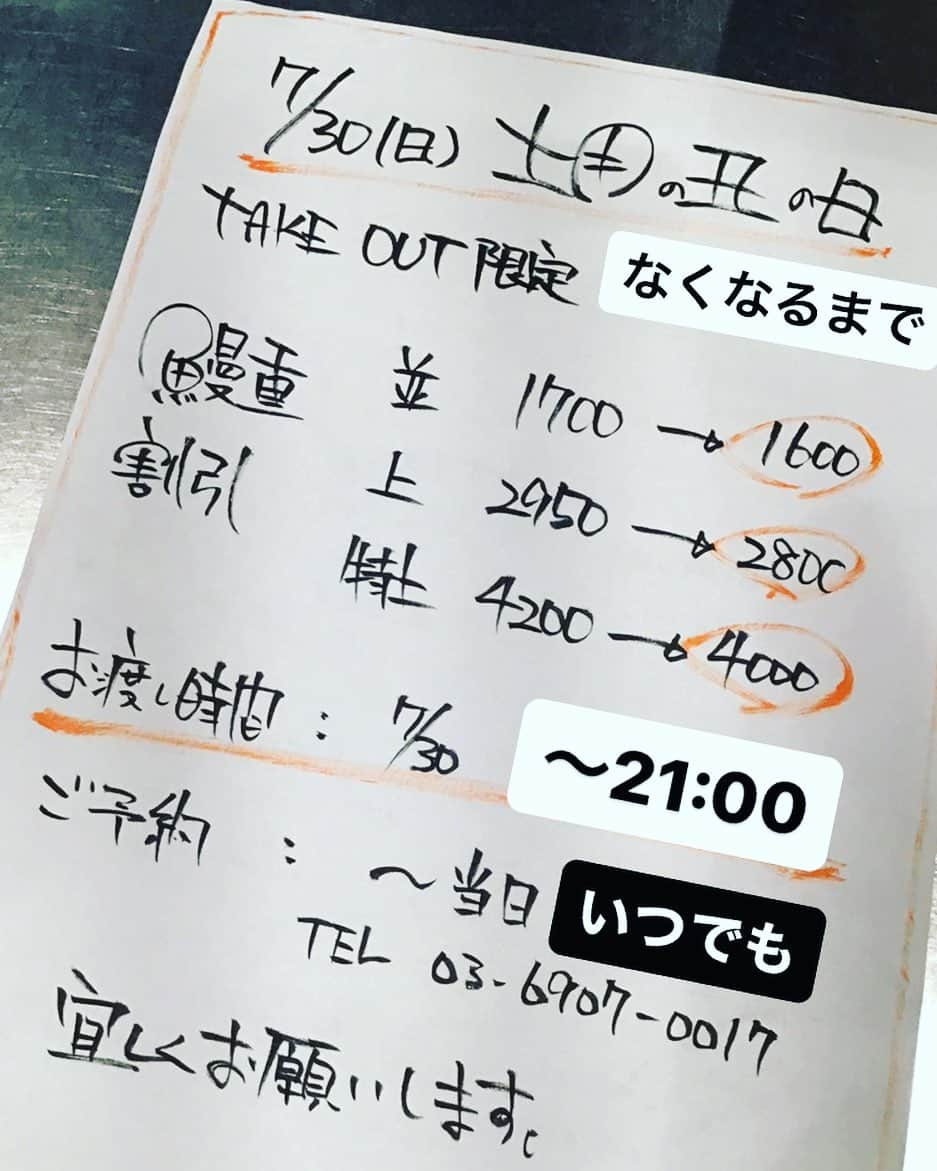 7/30(日) 土用の丑の日
TAKE OUT 限定 なくなるまで
鰻重 並 1700 → 1600
割引 上 2950 → 2800
特上 4200 → 4000
お渡し時間 : 7/30 〜21:00
ご予約 : 〜当日 いつでも
TEL 03-6907-0017
宜しくお願いします。